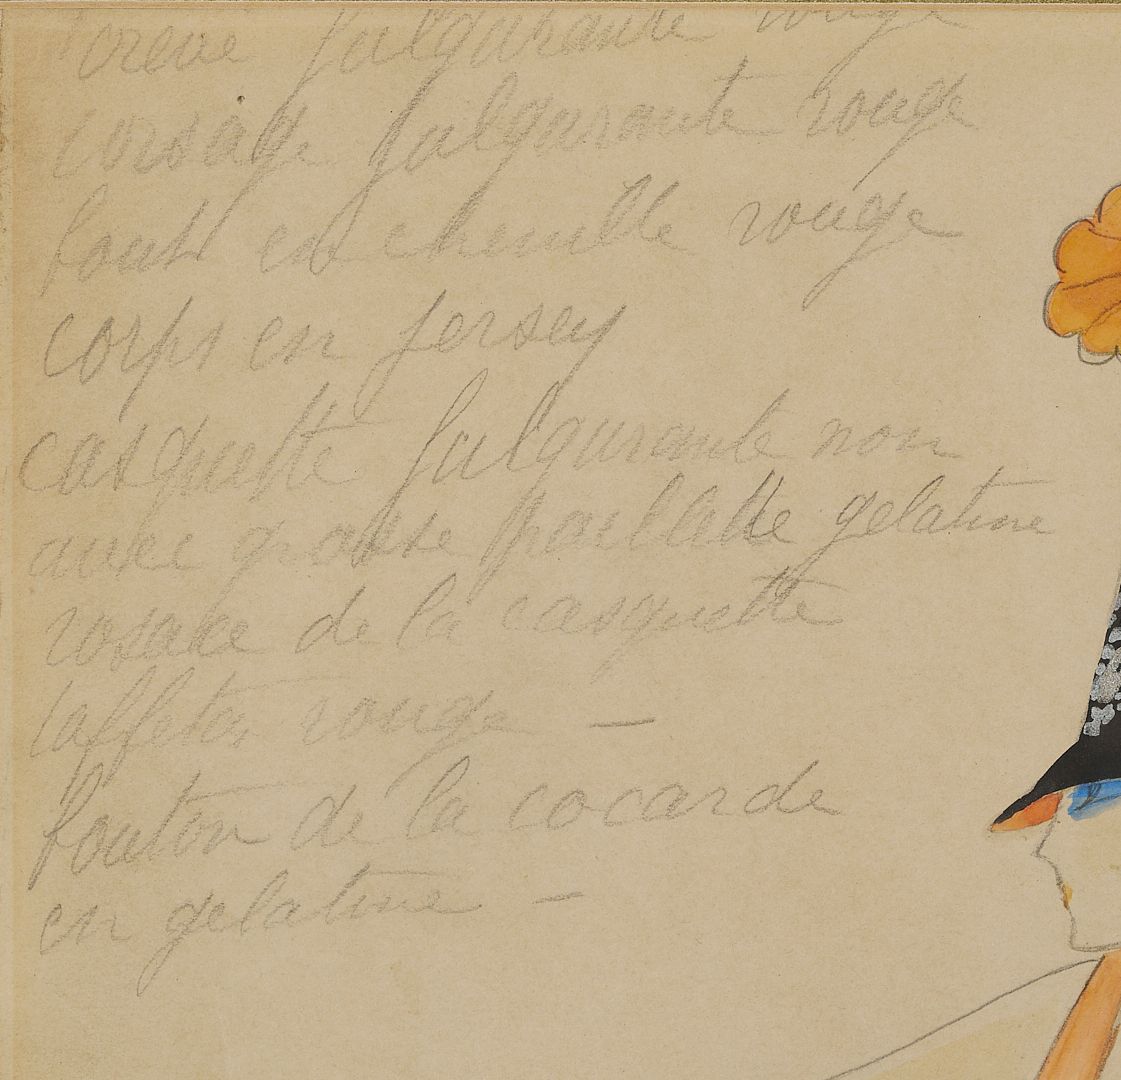 fulgurante rouge
corsage fulgurante rouge
en chenille rouge
corps en jersey
casquette fulgurante noir
avec grosse paillette gelatine
rosace de la casquette
taffetas rouge —
bouton de la cocarde
en gelatine —